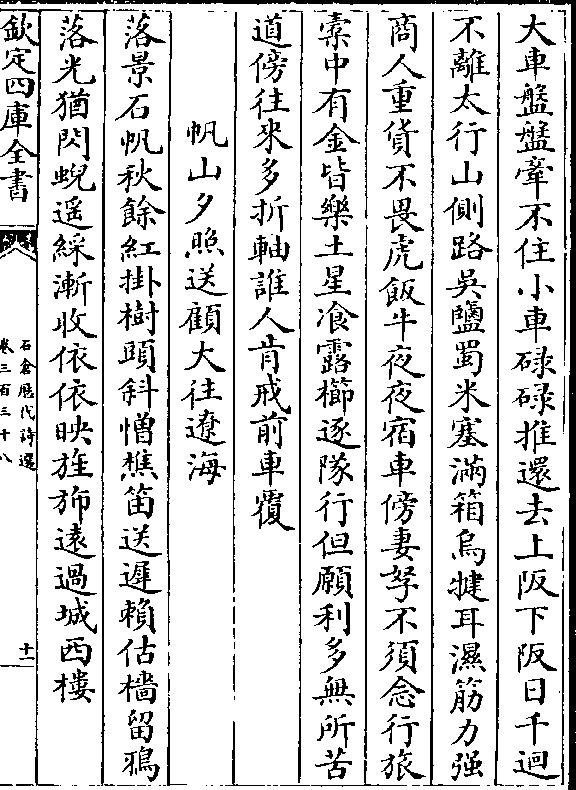 大車盤盤牽不住小車碌碌推還去上阪下阪日千迴
不離太行山側路吳鹽蜀米塞滿箱烏犍耳濕筋力强
商人重貨不畏虎飯牛夜夜宿車傍妻孥不須念行旅
橐中有金皆樂土星飡露櫛逐隊行但願利多無所苦
道傍往來多折軸誰人肯戒前車覆
帆山夕照送顧大往遼海
落景石帆秋餘紅掛樹頭斜憎樵笛送遲賴估檣留鴉
落光猶閃蜺遥綵漸收依依映旌斾遠過城西樓
欽定四庫全書
石倉歷代詩選
卷三百三十八
十一